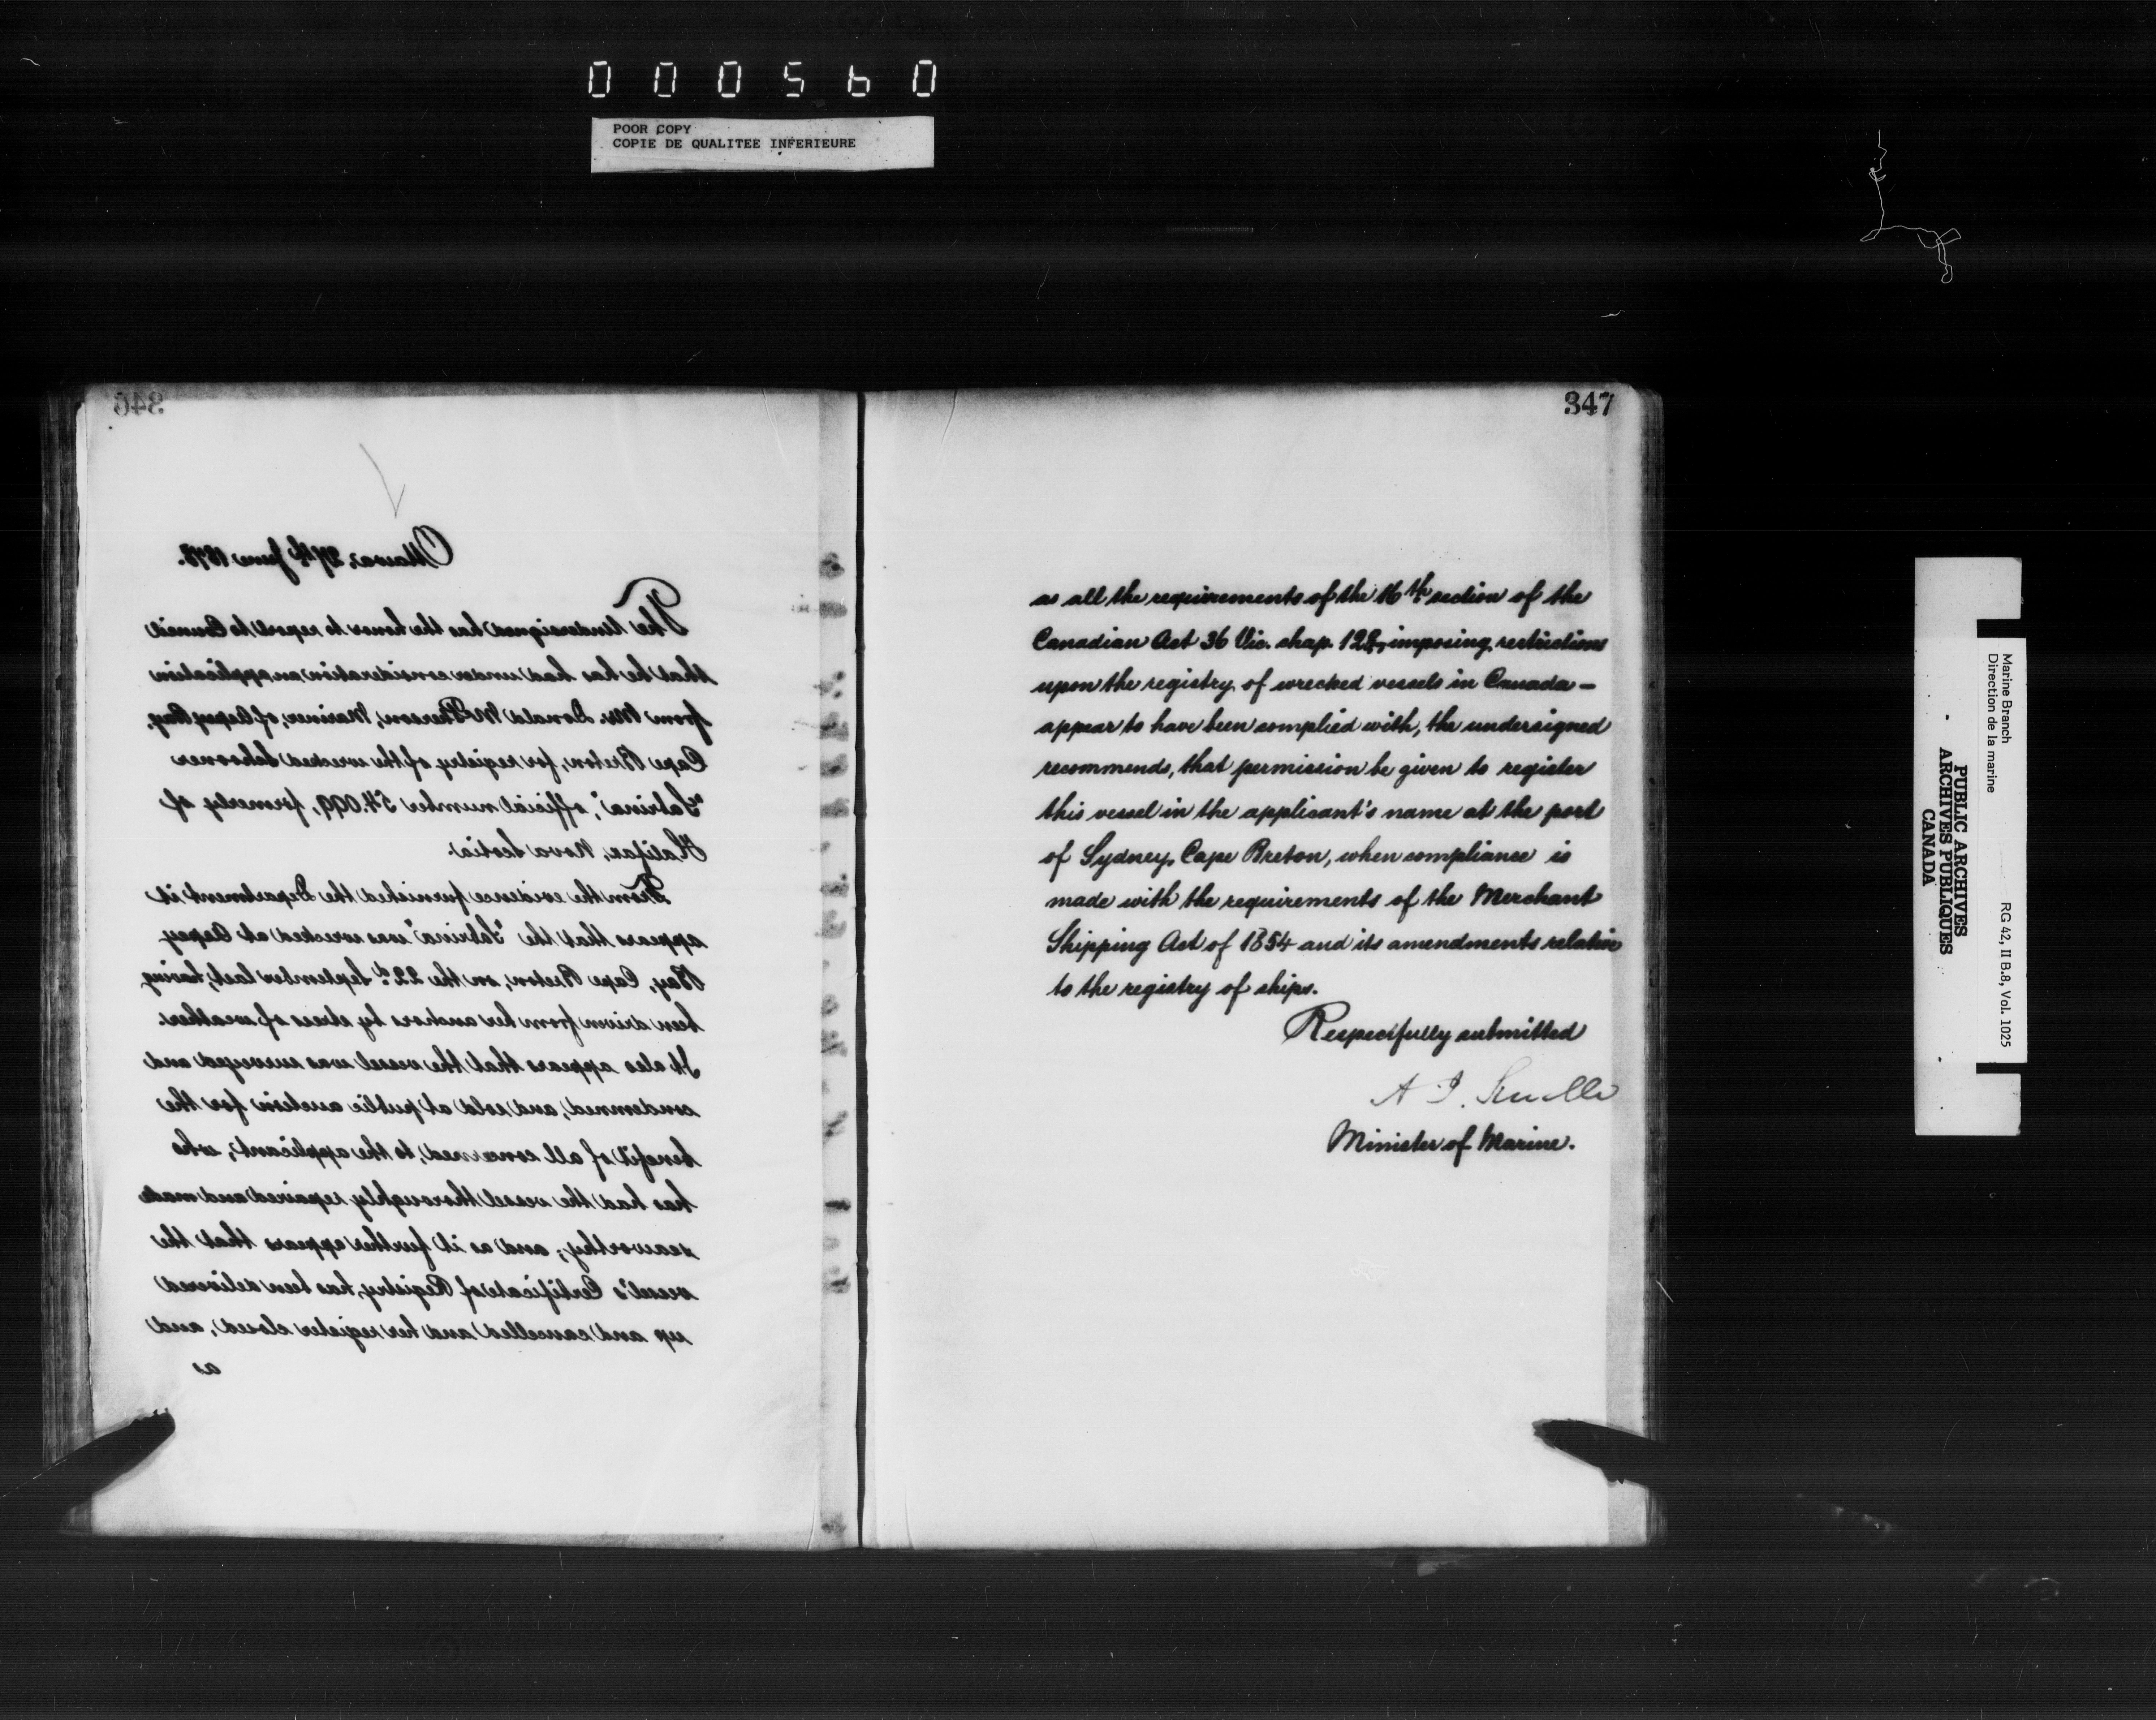 000560
POOR COPY
COPIE DE QUALITEE INFERIEURE
346
Ottawa, 27th June 1878.
The Undersigned has the honor to report to Council
that he has had under consideration an application
from Mr. Donald McPherson, Mariner, of Aspey Bay,
Cape Breton, for registry of the wrecked Schooner
"Sabrina", official number 54.099, formerly of
Halifax, Nova Scotia.
From the evidence furnished the Department it
appears that the "Sabrina" was wrecked at Aspey
Bay, Cape Breton, on the 22d. September last, having
been driven from her anchors by stress of weather.
It also appears that the vessel was surveyed and
condemned, and sold at public auction for the
benefit of all concerned, to the applicant, who
has had the vessel thoroughly repaired and made
seaworthy; and as it further appears that the
vessel's Certificate of Registry, has been delivered
up and cancelled and her register closed, and,
as
347
as all the requirements of the 16th section of the
Canadian Act 36 Vic. chap. 128, imposing restrictions
upon the registry of wrecked vessels in Canada -
appear to have been complied with, the undersigned
recommends, that permission be given to register
this vessel in the applicant's name at the port
of Sydney, Cape Breton, when compliance is
made with the requirements of the Merchant
Shipping Act of 1854 and its amendments relative
to the registry of ships.
Respectfully submitted
A. J. Smith
Minister of Marine.
Marine Branch
Direction de la marine
RG 42, II B.8, Vol. 1025
PUBLIC ARCHIVES
ARCHIVES PUBLIQUES
CANADA